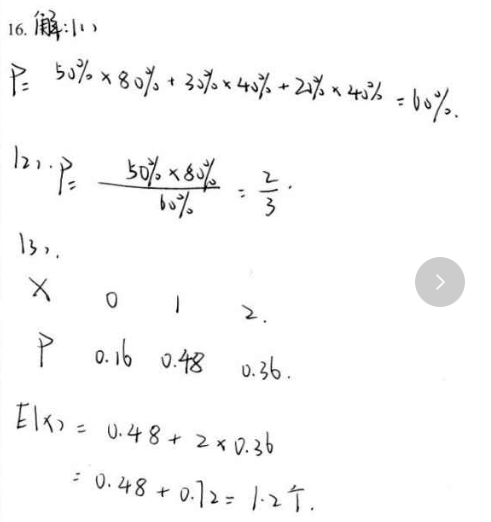 16. 解:(1)
P= 50%×80%+30%×40%+20%×40%=60%.
(2). P= 50%×80% / 60% = 2/3.
(3).
X 0 1 2.
P 0.16 0.48 0.36.
E(X)= 0.48+2×0.36
= 0.48+0.72=1.2个.